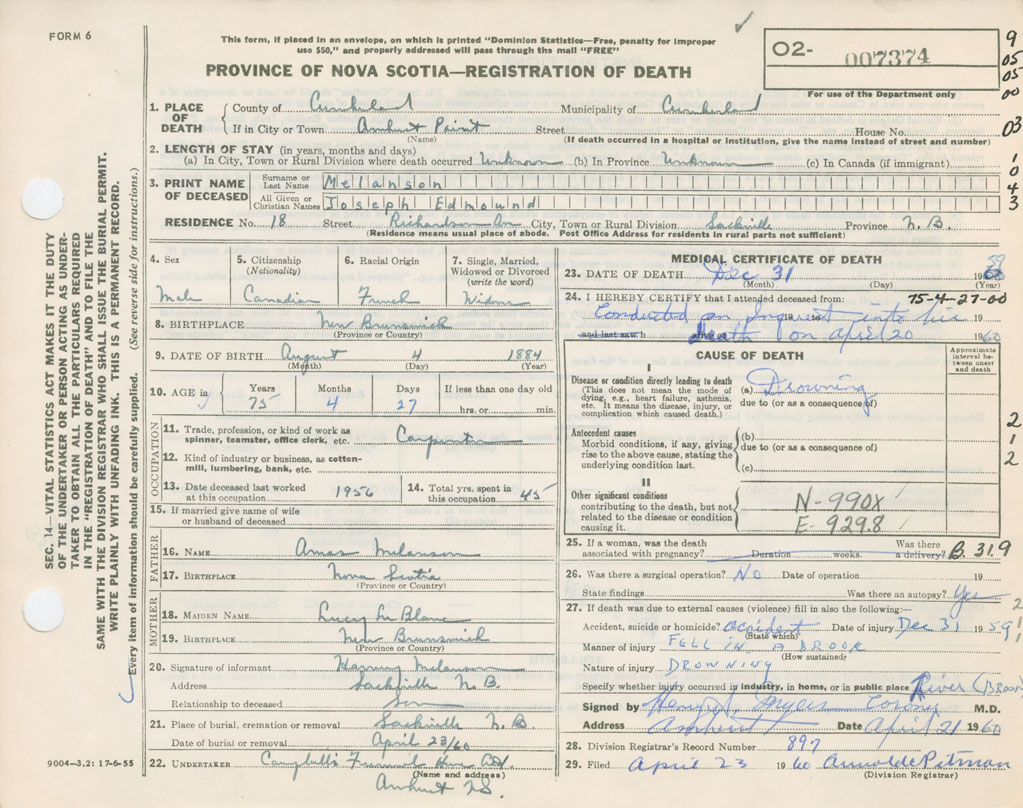 FORM 6
This form, if placed in an envelope, on which is printed "Dominion Statistics—Free, penalty for improper
use $50," and properly addressed will pass through the mail "FREE"
PROVINCE OF NOVA SCOTIA—REGISTRATION OF DEATH
02- 007374
For use of the Department only
9
05
05
00
03
1
0
4
3
1. PLACE OF DEATH { County of Cumberland Municipality of Cumberland
If in City or Town Amherst Point Street House No.
(Name) (If death occurred in a hospital or institution, give the name instead of street and number)
2. LENGTH OF STAY (in years, months and days)
(a) In City, Town or Rural Division where death occurred Unknown (b) In Province Unknown (c) In Canada (if immigrant)
3. PRINT NAME OF DECEASED { Surname or Last Name Melanson
All Given or Christian Names Joseph Edmound
RESIDENCE No. 18 Street Richardson Av City, Town or Rural Division Sackville Province N.B.
(Residence means usual place of abode. Post Office Address for residents in rural parts not sufficient)
4. Sex Male
5. Citizenship (Nationality) Canadian
6. Racial Origin French
7. Single, Married, Widowed or Divorced (write the word) Widower
8. BIRTHPLACE New Brunswick
(Province or Country)
9. DATE OF BIRTH August 4 1884
(Month) (Day) (Year)
10. AGE in Years 75 Months 4 Days 27 If less than one day old
hrs. or min.
OCCUPATION
11. Trade, profession, or kind of work as
spinner, teamster, office clerk, etc. Carpenter
12. Kind of industry or business, as cotton-
mill, lumbering, bank, etc.
13. Date deceased last worked
at this occupation 1956
14. Total yrs. spent in
this occupation 45
15. If married give name of wife
or husband of deceased
FATHER
16. NAME Amos Melanson
17. BIRTHPLACE Nova Scotia
(Province or Country)
MOTHER
18. MAIDEN NAME Lucy LeBlanc
19. BIRTHPLACE New Brunswick
(Province or Country)
20. Signature of informant Melanson
Address Sackville N.B.
Relationship to deceased Son
21. Place of burial, cremation or removal Sackville N.B.
Date of burial or removal April 23/60
22. UNDERTAKER Campbell's Funeral Home
(Name and address)
Amherst NS.
MEDICAL CERTIFICATE OF DEATH
23. DATE OF DEATH Dec 31 1960 59
(Month) (Day) (Year)
24. I HEREBY CERTIFY that I attended deceased from: 75-4-27-00
Conducted an Inquest 19 to into his
and last saw h death on April 20 1960
CAUSE OF DEATH
Approximate
interval be-
tween onset
and death
I
Disease or condition directly leading to death
(This does not mean the mode of
dying, e.g., heart failure, asthenia,
etc. It means the disease, injury, or
complication which caused death.)
(a) Drowning
due to (or as a consequence of)
Antecedent causes
Morbid conditions, if any, giving
rise to the above cause, stating the
underlying condition last.
(b)
due to (or as a consequence of)
(c)
2
1
2
II
Other significant conditions
contributing to the death, but not
related to the disease or condition
causing it.
N-990X
E-929.8
25. If a woman, was the death
associated with pregnancy? Duration weeks. Was there
a delivery? B. 31.9
26. Was there a surgical operation? NO Date of operation 19
State findings Was there an autopsy? Yes
27. If death was due to external causes (violence) fill in also the following:—
Accident, suicide or homicide? Accident Date of injury Dec 31 1959
(State which)
Manner of injury FELL IN A BROOK
(How sustained)
Nature of injury DROWNING
Specify whether injury occurred in industry, in home, or in public place River (BROOK)
Signed by Henry Myers Coroner M.D.
Address Amherst Date April 21 1960
28. Division Registrar's Record Number 897
29. Filed April 23 1960 Arnold Pitman
(Division Registrar)
SEC. 14—VITAL STATISTICS ACT MAKES IT THE DUTY
OF THE UNDERTAKER OR PERSON ACTING AS UNDER-
TAKER TO OBTAIN ALL THE PARTICULARS REQUIRED
IN THE "REGISTRATION OF DEATH" AND TO FILE THE
SAME WITH THE DIVISION REGISTRAR WHO SHALL ISSUE THE BURIAL PERMIT.
WRITE PLAINLY WITH UNFADING INK. THIS IS A PERMANENT RECORD.
Every item of information should be carefully supplied. (See reverse side for instructions.)
9004—3.2: 17-6-55